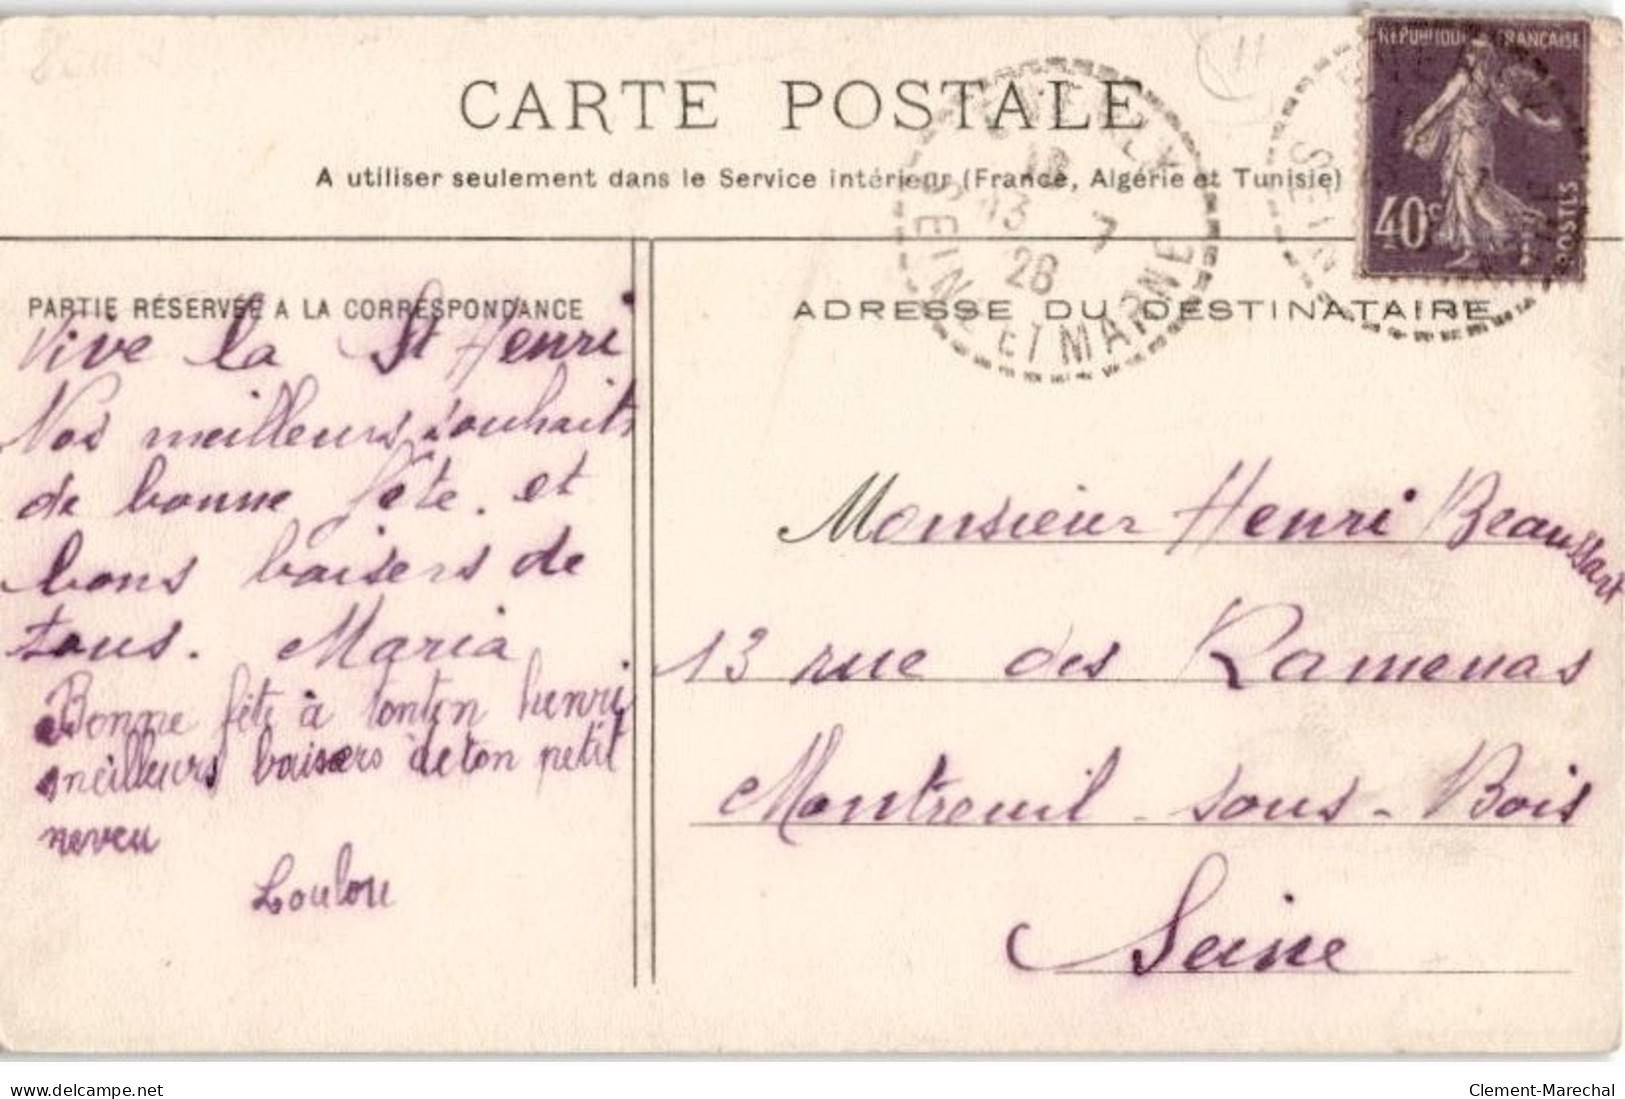 CARTE POSTALE
A utiliser seulement dans le Service intérieur (France, Algérie et Tunisie)
REPUBLIQUE FRANÇAISE
40c
POSTES
13 7
26
SEINE ET MARNE
PARTIE RÉSERVÉE A LA CORRESPONDANCE
Vive la St Henri
Nos meilleurs souhaits
de bonne fête. et
bons baisers de
tous. Maria
Bonne fête à tonton henri
meilleurs baisers de ton petit
neveu
Loulou
ADRESSE DU DESTINATAIRE
Monsieur Henri Beaussart
13 rue des Ramenas
Montreuil - sous - Bois
Seine
delcampe.net
Clement-Marechal